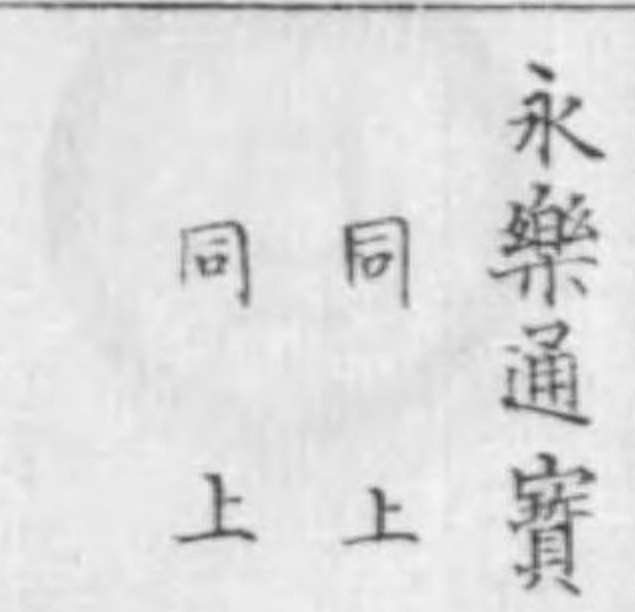 永樂通寳
同上
同上